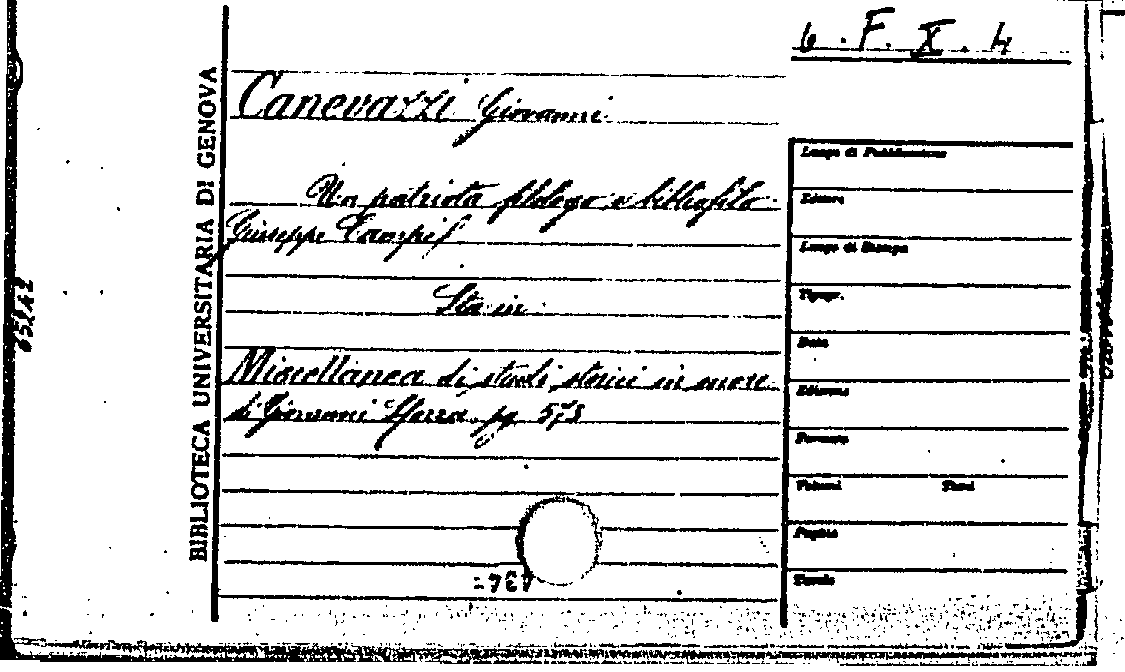 6. F. X. 4
BIBLIOTECA UNIVERSITARIA DI GENOVA
Canevazzi Giovanni
Un patriota filologo e bibliofilo
Giuseppe Campi
Sta in
Miscellanea di studi storici in onore
di Giovanni Sforza pg 573
Luogo di Pubblicazione
Editore
Luogo di Stampa
Tipogr.
Data
Edizione
Formato
Volumi Tomi
Pagine
Tavole